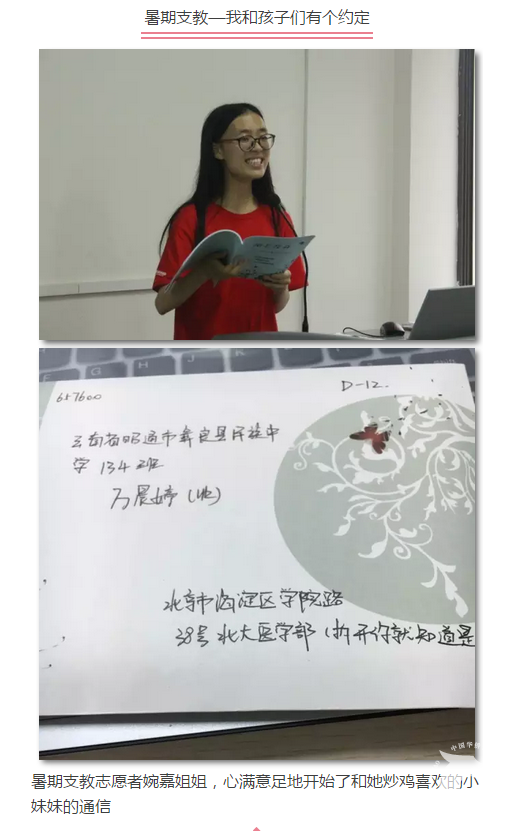 暑期支教—我和孩子们有个约定
657600
D-12.
云南省昭通市彝良县民族中
学 134班
万晨婷(收)
北京市海淀区学院路
38号 北大医学部 (拆开你就知道是
暑期支教志愿者婉嘉姐姐，心满意足地开始了和她炒鸡喜欢的小
妹妹的通信